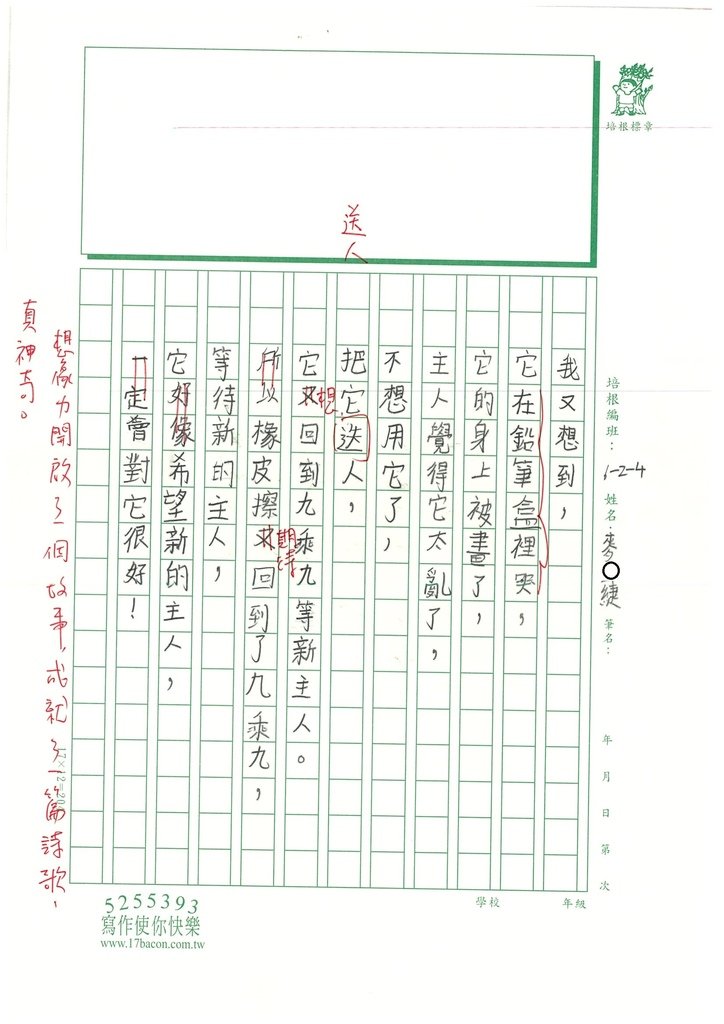 培根標章
培根編班：1-2-4 姓名：麥 緁 筆名：
年 月 日 第 次
送人
我又想到，
它在鉛筆盒裡哭，
它的身上被畫了，
主人覺得它太亂了，
不想用它了，
把它送人，
它又想回到九乘九等新主人。
所以橡皮擦又回到了九乘九，
期待
等待新的主人，
它好像希望新的主人，
一定會對它很好！
想像力開啟了一個故事，成就了一篇詩歌，
真神奇。
學校 年級
5255393
寫作使你快樂
www.17bacon.com.tw